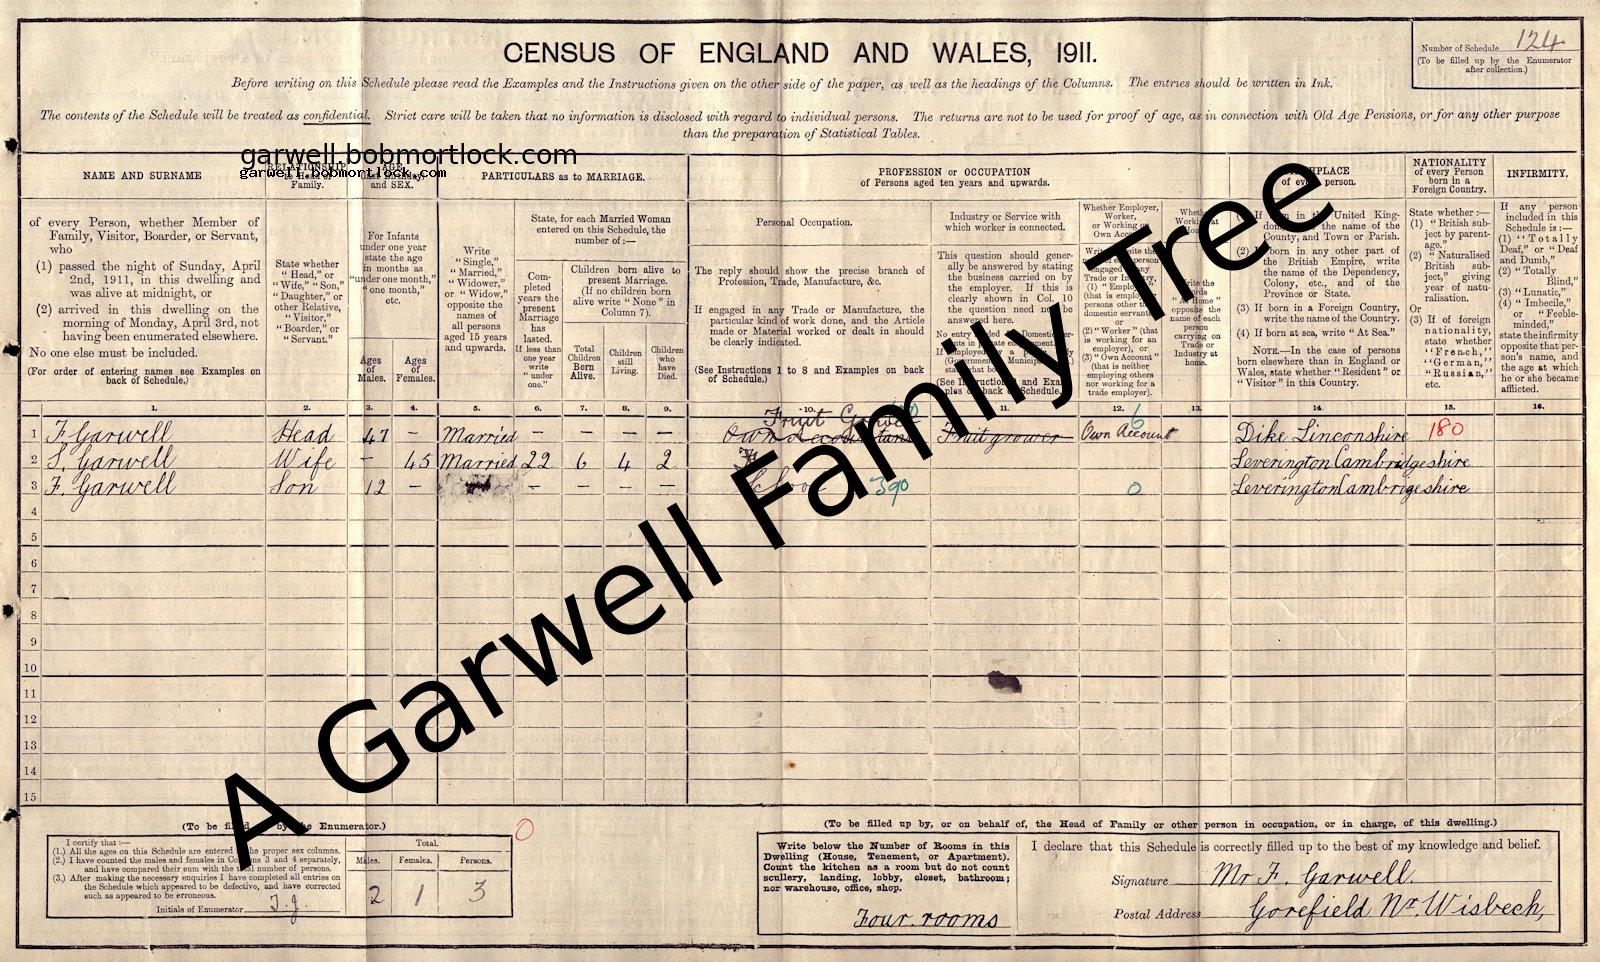 CENSUS OF ENGLAND AND WALES, 1911.
Number of Schedule 124
(To be filled up by the Enumerator
after collection.)
Before writing on this Schedule please read the Examples and the Instructions given on the other side of the paper, as well as the headings of the Columns. The entries should be written in Ink.
The contents of the Schedule will be treated as confidential. Strict care will be taken that no information is disclosed with regard to individual persons. The returns are not to be used for proof of age, as in connection with Old Age Pensions, or for any other purpose
than the preparation of Statistical Tables.
garwell.bobmortlock.com
garwell.bobmortlock.com
NAME AND SURNAME
of every Person, whether Member of
Family, Visitor, Boarder, or Servant,
who
(1) passed the night of Sunday, April
2nd, 1911, in this dwelling and
was alive at midnight, or
(2) arrived in this dwelling on the
morning of Monday, April 3rd, not
having been enumerated elsewhere.
No one else must be included.
(For order of entering names see Examples on
back of Schedule.)
RELATIONSHIP
to Head of
Family.
State whether
"Head," or
"Wife," "Son,"
"Daughter," or
other Relative,
"Visitor,"
"Boarder," or
"Servant."
AGE
(last Birthday)
and SEX.
For Infants
under one year
state the age
in months as
"under one month,"
"one month,"
etc.
Ages
of
Males.
Ages
of
Females.
PARTICULARS as to MARRIAGE.
Write
"Single,"
"Married,"
"Widower,"
or "Widow,"
opposite the
names of
all persons
aged 15 years
and upwards.
State, for each Married Woman
entered on this Schedule, the
number of:—
Com-
pleted
years the
present
Marriage
has
lasted.
If less than
one year
write
"under
one."
Children born alive to
present Marriage.
(If no children born
alive write "None" in
Column 7).
Total
Children
Born
Alive.
Children
still
Living.
Children
who
have
Died.
PROFESSION or OCCUPATION
of Persons aged ten years and upwards.
Personal Occupation.
The reply should show the precise branch of
Profession, Trade, Manufacture, &c.
If engaged in any Trade or Manufacture, the
particular kind of work done, and the Article
made or Material worked or dealt in should
be clearly indicated.
(See Instructions 1 to 8 and Examples on back
of Schedule.)
Industry or Service with
which worker is connected.
This question should gener-
ally be answered by stating
the business carried on by
the employer. If this is
clearly shown in Col. 10
the question need not be
answered here.
Whether Employer,
Worker,
or Working on
Own Account.
(2) "Worker" (that
is working for an
employer), or
(3) "Own Account"
(that is neither
employing others
nor working for a
trade employer).
Write the
opposite the
name of each
person
carrying on
Trade or
Industry at
home.
BIRTHPLACE
of every person.
(1) If born in the United King-
dom, write the name of the
County, and Town or Parish.
(2) If born in any other part of
the British Empire, write
the name of the Dependency,
Colony, etc., and of the
Province or State.
(3) If born in a Foreign Country,
write the name of the Country.
(4) If born at sea, write "At Sea."
NOTE.—In the case of persons
born elsewhere than in England or
Wales, state whether "Resident" or
"Visitor" in this Country.
NATIONALITY
of every Person
born in a
Foreign Country.
State whether:—
(1) "British sub-
ject by parent-
age."
(2) "Naturalised
British sub-
ject," giving
year of natu-
ralisation.
Or
(3) If of foreign
nationality,
state whether
"French,"
"German,"
"Russian,"
etc.
INFIRMITY.
If any person
included in this
Schedule is:—
(1) "Totally
Deaf," or "Deaf
and Dumb,"
(2) "Totally
Blind,"
(3) "Lunatic,"
(4) "Imbecile,"
or "Feeble-
minded,"
state the infirmity
opposite that per-
son's name, and
the age at which
he or she became
afflicted.
1. 2. 3. 4. 5. 6. 7. 8. 9. 10. 11. 12. 13. 14. 15. 16.
Fruit Grower 6
1 F Garwell Head 47 – Married – – – – Own Accountant Fruitgrower Own Account Dike Linconshire 180
2 S. Garwell Wife – 45 Married 22 6 4 2 Leverington Cambridgeshire
3 F. Garwell Son 12 – – – – – School 390 0 Leverington Cambrigeshire
4
5
6
7
8
9
10
11
12
13
14
15
A Garwell Family Tree
(To be filled up by the Enumerator.)
I certify that:—
(1.) All the ages on this Schedule are entered in the proper sex columns.
(2.) I have counted the males and females in Columns 3 and 4 separately,
and have compared their sum with the total number of persons.
(3.) After making the necessary enquiries I have completed all entries on
the Schedule which appeared to be defective, and have corrected
such as appeared to be erroneous.
Initials of Enumerator T.J.
Total.
Males. Females. Persons.
2 1 3
0
(To be filled up by, or on behalf of, the Head of Family or other person in occupation, or in charge, of this dwelling.)
Write below the Number of Rooms in this
Dwelling (House, Tenement, or Apartment).
Count the kitchen as a room but do not count
scullery, landing, lobby, closet, bathroom;
nor warehouse, office, shop.
Four rooms
I declare that this Schedule is correctly filled up to the best of my knowledge and belief.
Signature Mr F. Garwell.
Postal Address Gorefield Nr. Wisbech,